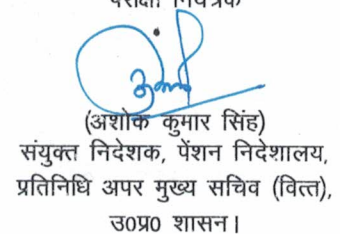 परीक्षा नियंत्रक
(अशोक कुमार सिंह)
संयुक्त निदेशक, पेंशन निदेशालय,
प्रतिनिधि अपर मुख्य सचिव (वित्त),
उ०प्र० शासन।